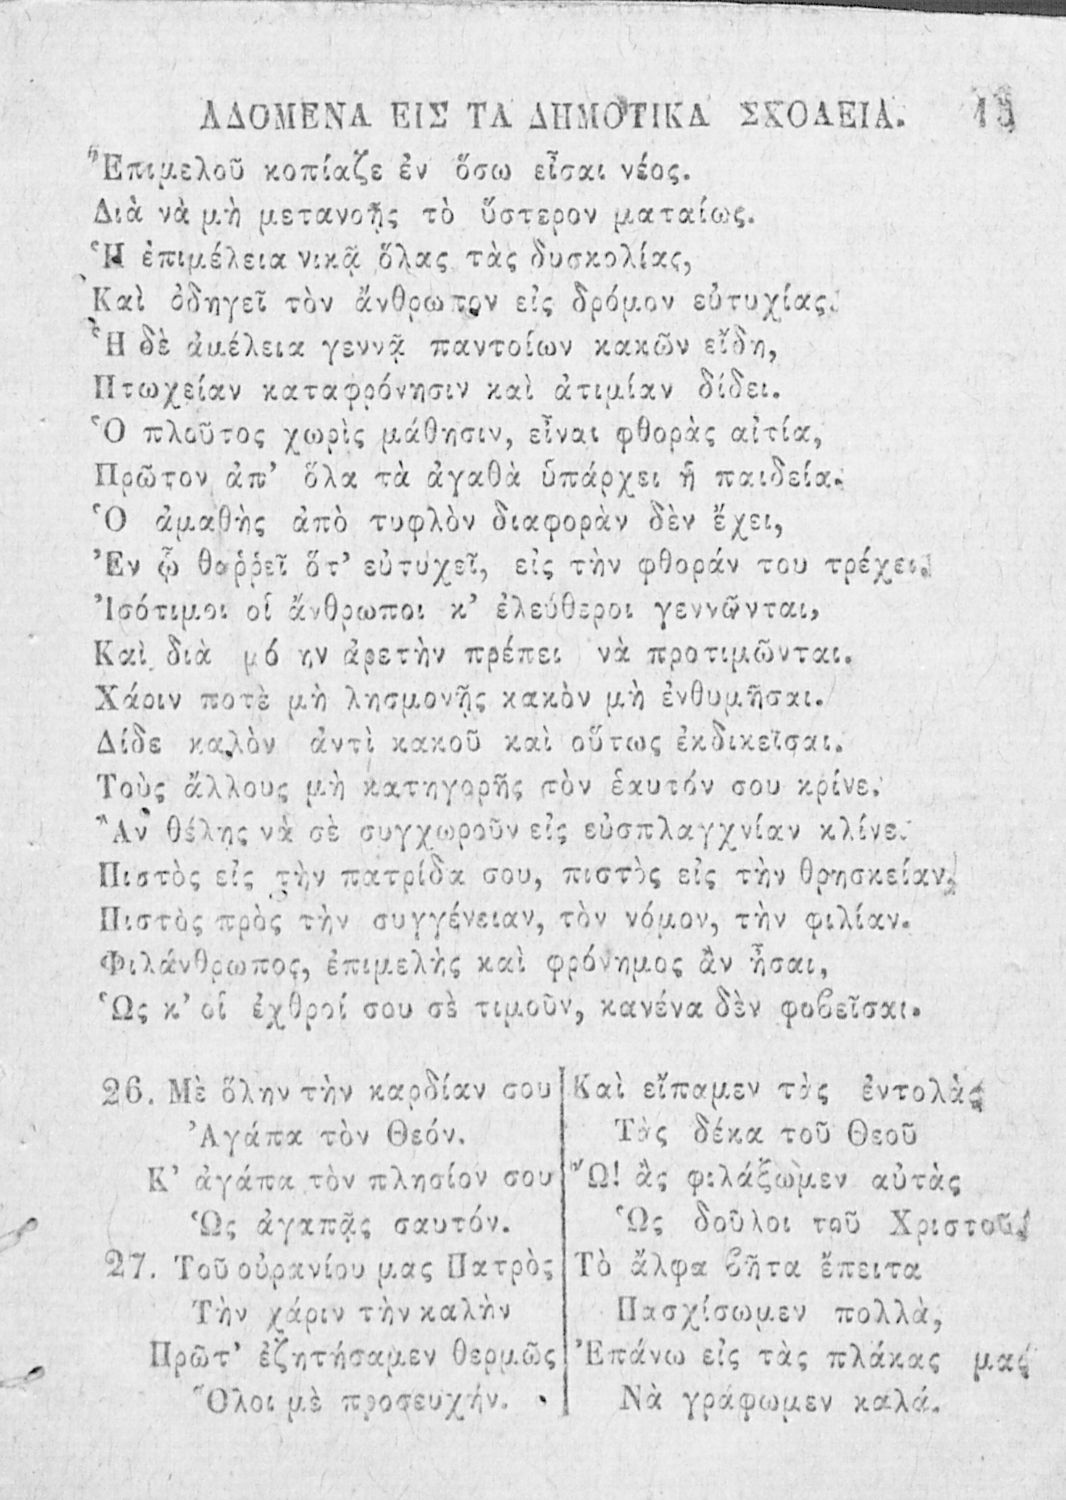 ΑΔΟΜΕΝΑ ΕΙΣ ΤΑ ΔΗΜΟΤΙΚΑ ΣΧΟΛΕΙΑ. 15
Ἐπιμελοῦ κοπίαζε ἐν ὅσω εἶσαι νέος.
Διὰ νὰ μὴ μετανοῇς τὸ ὕστερον ματαίως.
Ἡ ἐπιμέλεια νικᾷ ὅλας τὰς δυσκολίας,
Καὶ ὁδηγεῖ τὸν ἄνθρωπον εἰς δρόμον εὐτυχίας.
Ἡ δὲ ἀμέλεια γεννᾷ παντοίων κακῶν εἴδη,
Πτωχείαν καταφρόνησιν καὶ ἀτιμίαν δίδει.
Ὁ πλοῦτος χωρὶς μάθησιν, εἶναι φθορὰς αἰτία,
Πρῶτον ἀπ' ὅλα τὰ ἀγαθὰ ὑπάρχει ἡ παιδεία.
Ὁ ἀμαθὴς ἀπὸ τυφλὸν διαφορὰν δὲν ἔχει,
Ἐν ᾧ θαῤῥεῖ ὅτ' εὐτυχεῖ, εἰς τὴν φθοράν του τρέχει.
Ἰσότιμοι οἱ ἄνθρωποι κ' ἐλεύθεροι γεννῶνται,
Καὶ διὰ μό ην ἀρετὴν πρέπει νὰ προτιμῶνται.
Χάριν ποτὲ μὴ λησμονῇς κακὸν μὴ ἐνθυμῆσαι.
Δίδε καλὸν ἀντὶ κακοῦ καὶ οὕτως ἐκδικεῖσαι.
Τοὺς ἄλλους μὴ κατηγορῇς τὸν ἑαυτόν σου κρίνε.
Ἂν θέλῃς νὰ σὲ συγχωροῦν εἰς εὐσπλαγχνίαν κλίνε.
Πιστὸς εἰς τὴν πατρίδα σου, πιστὸς εἰς τὴν θρησκείαν,
Πιστὸς πρὸς τὴν συγγένειαν, τὸν νόμον, τὴν φιλίαν.
Φιλάνθρωπος, ἐπιμελὴς καὶ φρόνημος ἂν ἦσαι,
Ὡς κ' οἱ ἐχθροί σου σὲ τιμοῦν, κανένα δὲν φοβεῖσαι.
26. Μὲ ὅλην τὴν καρδίαν σου
Ἀγάπα τὸν Θεόν.
Κ' ἀγάπα τὸν πλησίον σου
Ὡς ἀγαπᾷς σαυτόν.
27. Τοῦ οὐρανίου μας Πατρὸς
Τὴν χάριν τὴν καλὴν
Πρῶτ' ἐζητήσαμεν θερμῶς
Ὅλοι μὲ προσευχήν.
Καὶ εἴπαμεν τὰς ἐντολὰς
Τὰς δέκα τοῦ Θεοῦ
Ὤ! ἂς φιλάξωμεν αὐτὰς
Ὡς δοῦλοι τοῦ Χριστοῦ.
Τὸ ἄλφα βῆτα ἔπειτα
Πασχίσωμεν πολλὰ,
Ἐπάνω εἰς τὰς πλάκας μας
Νὰ γράφωμεν καλά.